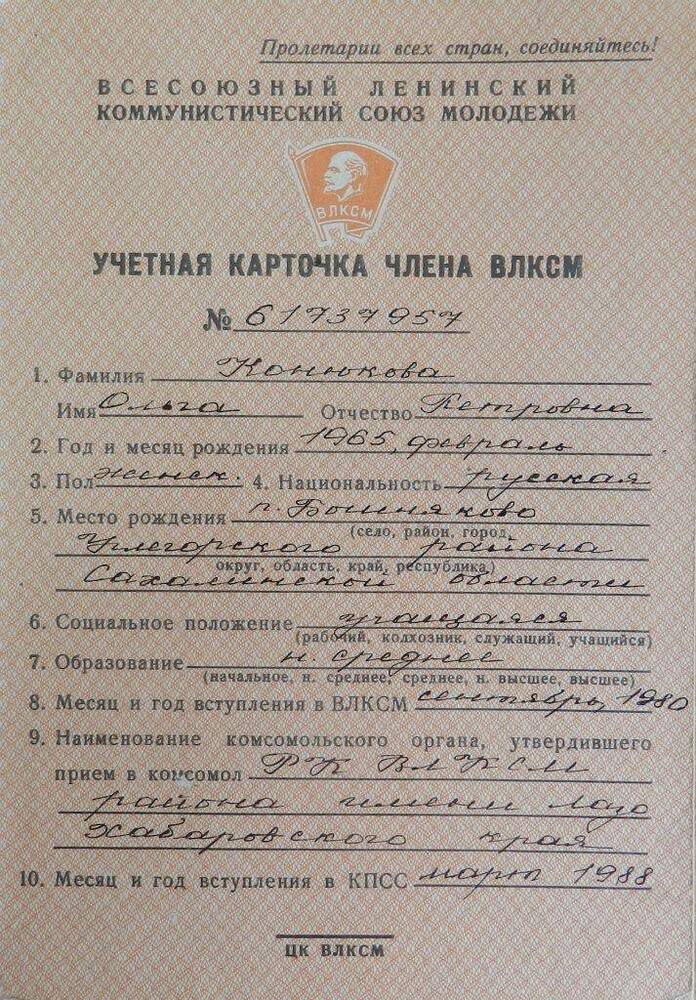 Пролетарии всех стран, соединяйтесь!
ВСЕСОЮЗНЫЙ ЛЕНИНСКИЙ
КОММУНИСТИЧЕСКИЙ СОЮЗ МОЛОДЕЖИ
ВЛКСМ
УЧЕТНАЯ КАРТОЧКА ЧЛЕНА ВЛКСМ
№ 61737957
1. Фамилия Конюкова
Имя Ольга Отчество Петровна
2. Год и месяц рождения 1965, февраль
3. Пол женск. 4. Национальность русская
5. Место рождения п. Бошняково
(село, район, город,
Углегорского района
округ, область, край, республика)
Сахалинской области
6. Социальное положение учащаяся
(рабочий, колхозник, служащий, учащийся)
7. Образование н. среднее
(начальное, н. среднее, среднее, н. высшее, высшее)
8. Месяц и год вступления в ВЛКСМ сентябрь, 1980
9. Наименование комсомольского органа, утвердившего
прием в комсомол РК ВЛКСМ
района имени Лазо
Хабаровского края
10. Месяц и год вступления в КПСС март 1988
ЦК ВЛКСМ